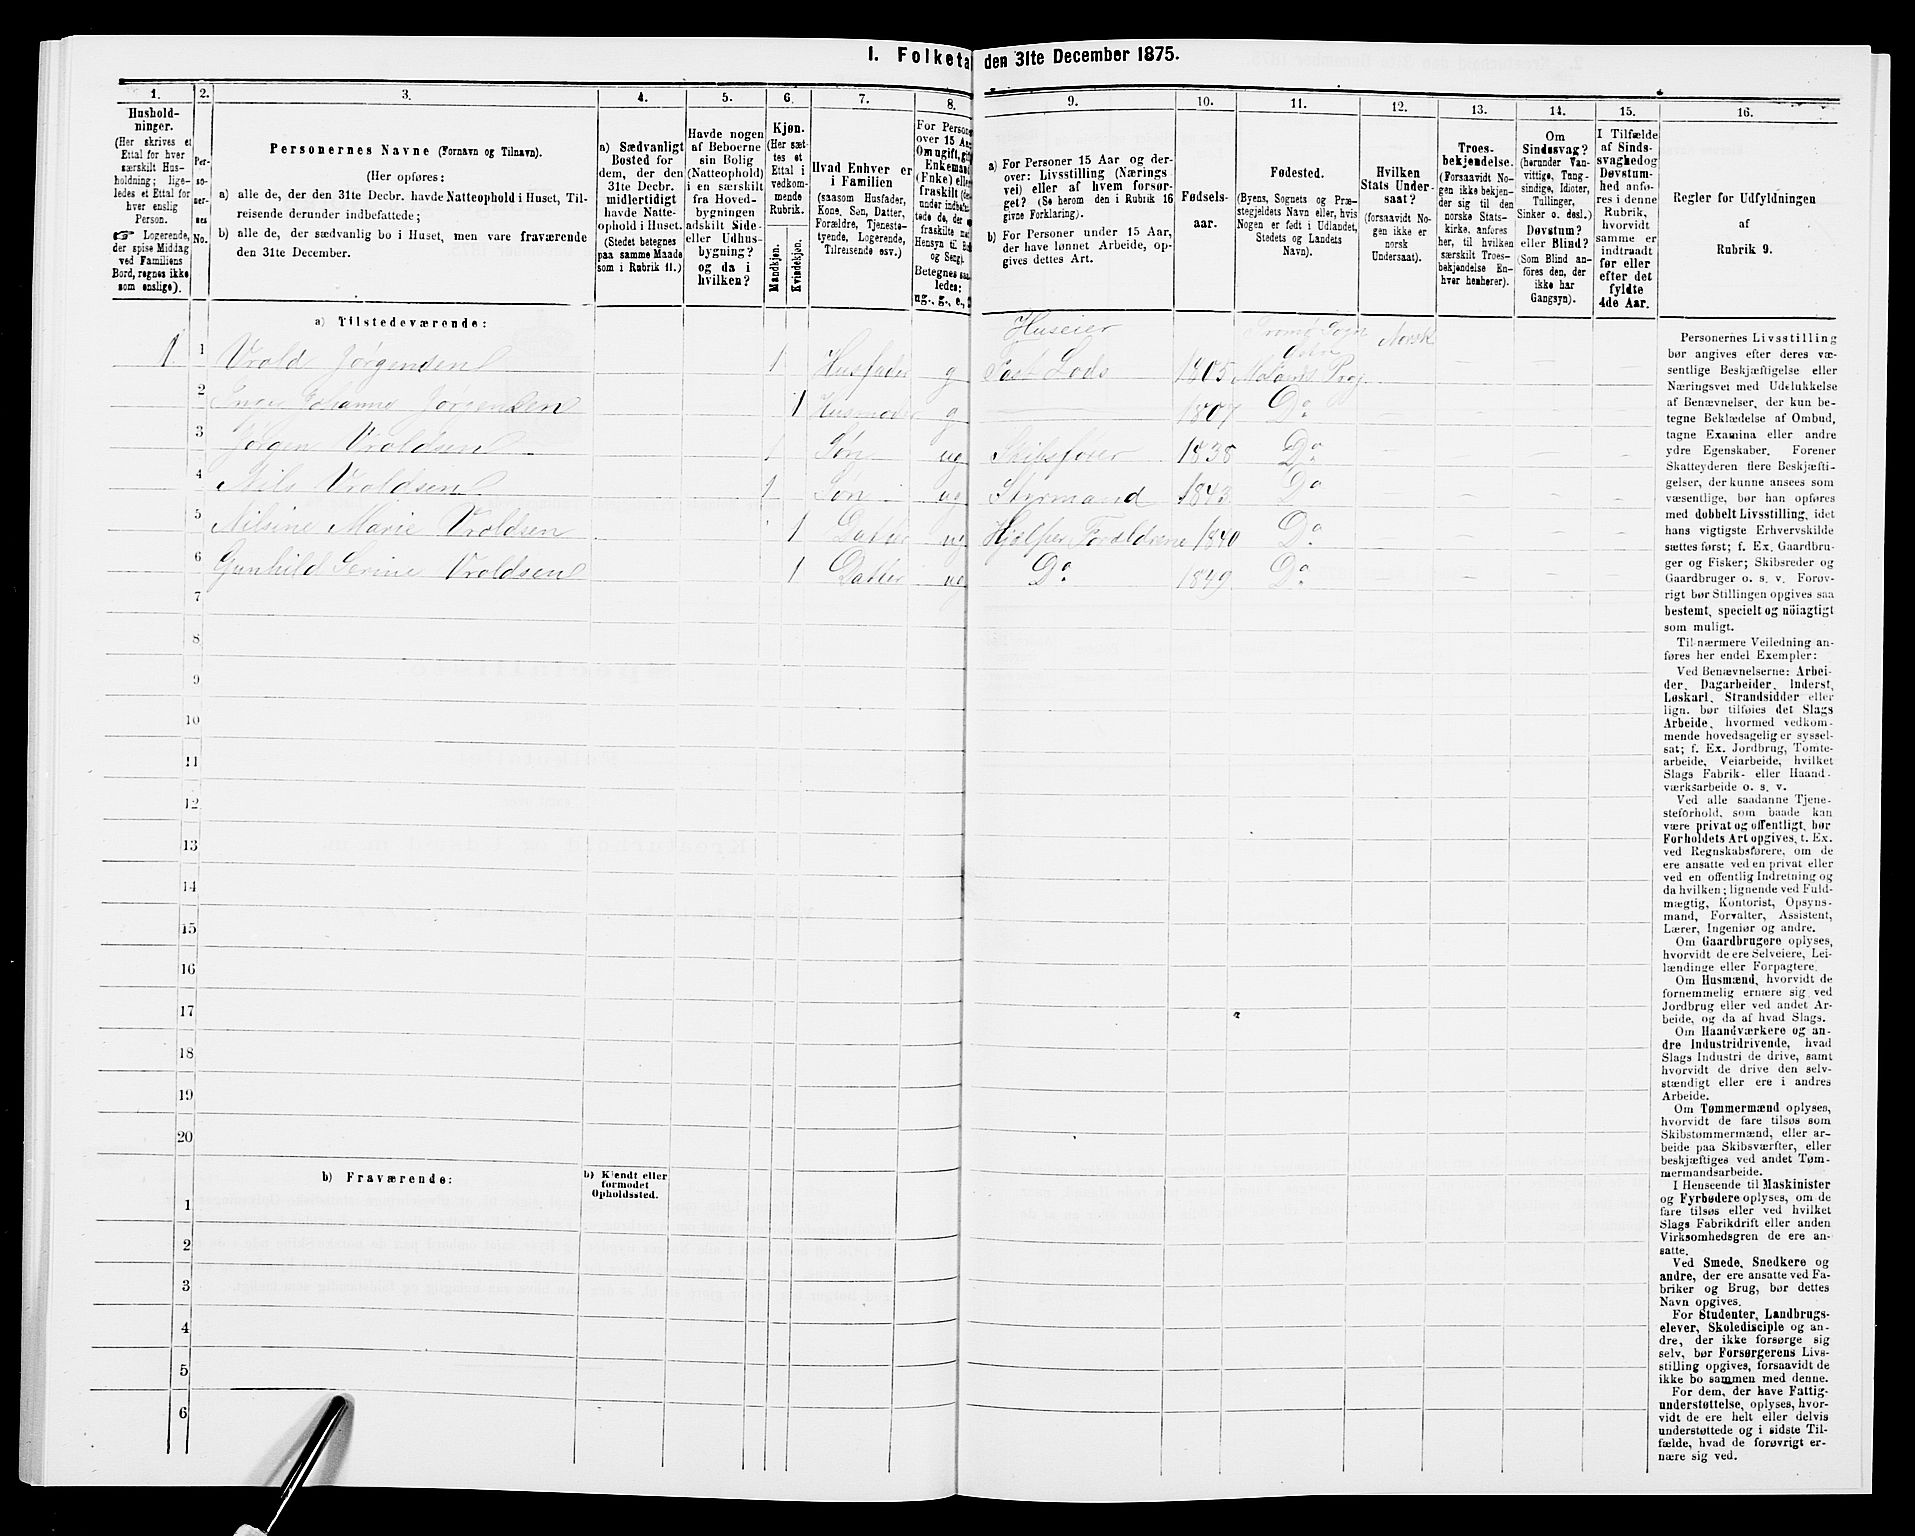 1. Folketa den 31te December 1875.
1. 2. 3. 4. 5. 6. 7. 8. 9. 10. 11. 12. 13. 14. 15. 16.
Hushold-
ninger.
(Her skrives et
Ettal for hver
særskilt Hus-
holdning; lige-
ledes et Ettal for
hver enslig
Person.
☞ Logerende,
der spise Middag
ved Familiens
Bord, regnes ikke
som enslige).
Per-
so-
ner-
nes
No.
Personernes Navne (Fornavn og Tilnavn).
(Her opføres:
a) alle de, der den 31te Decbr. havde Natteophold i Huset, Til-
reisende derunder indbefattede;
b) alle de, der sædvanlig bo i Huset, men vare fraværende
den 31te December.
a) Sædvanligt
Bosted for
dem, der den
31te Decbr.
midlertidigt
havde Natte-
ophold i Huset.
(Stedet betegnes
paa samme Maade
som i Rubrik 11.)
Havde nogen
af Beboerne
sin Bolig
(Natteophold)
i en særskilt
fra Hoved-
bygningen
adskilt Side-
eller Udhus-
bygning?
og da i
hvilken?
Kjøn.
(Her sæt-
tes et
Ettal i
vedkom-
mende
Rubrik.
Mandkjøn.
Kvindekjøn.
Hvad Enhver er
i Familien
(saasom Husfader,
Kone, Søn, Datter,
Forældre, Tjeneste-
tyende, Logerende,
Tilreisende osv.)
For Persone
over 15 Aa
Om ugift, gif
Enkemand
(Enke) elle
fraskilt (de
under indbefat-
tede de, der e
fraskilte m
Hensyn til Bo
og Seng).
Betegnes saa-
ledes:
ug., g., e.,
a) For Personer 15 Aar og der-
over: Livsstilling (Nærings
vei) eller af hvem forsør-
get? (Se herom den i Rubrik 16
givne Forklaring).
b) For Personer under 15 Aar,
der have lønnet Arbeide, op-
gives dettes Art.
Fødsels-
aar.
Fødested.
(Byens, Sognets og Præ-
stegjeldets Navn eller, hvis
Nogen er født i Udlandet,
Stedets og Landets
Navn).
Hvilken
Stats Under-
saat?
(forsaavidt No-
gen ikke er
norsk
Undersaat).
Troes-
bekjendelse.
(Forsaavidt No-
gen ikke bekjen-
der sig til den
norske Stats-
kirke, anføres
her, til hvilken
særskilt Troes-
bekjendelse En-
hver henhører).
Om
Sindssvag?
(herunder Van-
vittige, Tung-
sindige, Idioter,
Tullinger,
Sinker o. desl.)
Døvstum?
eller Blind?
(Som Blind an-
føres den, der
ikke har
Gangsyn).
I Tilfælde
af Sinds-
svaghed og
Døvstum-
hed anfø-
res i denne
Rubrik,
hvorvidt
samme er
indtraadt
før eller
efter det
fyldte
4de Aar.
Regler for Udfyldningen
af
Rubrik 9.
a) Tilstedeværende:
Huseier
1 1 Vrold Jørgensen 1 Husfader g Fast Lods 1805 Norsk
2 Inger Johanne Jørgensen 1 Husmoder g 1807 Do
3 Jørgen Vroldsen 1 Søn ug Skibsfører 1838 Do
4 Nils Vroldsen 1 Søn ug Styrmand 1843 Do
5 Nilsine Marie Vroldsen 1 Datter ug Hjælper Forældrene 1840 Do
6 Gunhild Serine Vroldsen 1 Datter ug Do 1849 Do
7
8
9
10
11
12
13
14
15
16
17
18
19
20
b) Fraværende:
b) Kjendt eller
formodet
Opholdssted.
1
2
3
4
5
6
Personernes Livsstilling
bør angives efter deres væ-
sentlige Beskjæftigelse eller
Næringsvei med Udelukkelse
af Benævnelser, der kun be-
tegne Beklædelse af Ombud,
tagne Examina eller andre
ydre Egenskaber. Forener
Skatteyderen flere Beskjæfti-
gelser, der kunne ansees som
væsentlige, bør han opføres
med dobbelt Livsstilling, idet
hans vigtigste Erhvervskilde
sættes først; f. Ex. Gaardbru-
ger og Fisker; Skibsreder og
Gaardbruger o. s. v. Forøv-
rigt bør Stillingen opgives saa
bestemt, specielt og nöiagtigt
som muligt.
Til nærmere Veiledning an-
føres her endel Exempler:
Ved Benævnelserne: Arbei-
der, Dagarbeider, Inderst,
Løskarl, Strandsidder eller
lign. bør tilføies det Slags
Arbeide, hvormed vedkom-
mende hovedsagelig er syssel-
sat; f. Ex. Jordbrug, Tomte-
arbeide, Veiarbeide, hvilket
Slags Fabrik- eller Haand-
værksarbeide o. s. v.
Ved alle saadanne Tjene-
steforhold, som baade kan
være privat og offentligt, bør
Forholdets Art opgives, t. Ex.
ved Regnskabsførere, om de
ere ansatte ved en privat eller
ved en offentlig Indretning og
da hvilken; lignende ved Fuld-
mægtig, Kontorist, Opsyns-
mand, Forvalter, Assistent,
Lærer, Ingeniør og andre.
Om Gaardbrugere oplyses,
hvorvidt de ere Selveiere, Lei-
lændinge eller Forpagtere.
Om Husmænd, hvorvidt de
fornemmelig ernære sig ved
Jordbrug eller ved andet Ar-
beide, og da af hvad Slags.
Om Haandværkere og an-
dre Industridrivende, hvad
Slags Industri de drive, samt
hvorvidt de drive den selv-
stændigt eller ere i andres
Arbeide.
Om Tømmermænd oplyses,
hvorvidt de fare tilsøs som
Skibstømmermænd, eller ar-
beide paa Skibsværfter, eller
beskjæftiges ved andet Tøm-
mermandsarbeide.
I Henseende til Maskinister
og Fyrbødere oplyses, om de
fare tilsøs eller ved hvilket
Slags Fabrikdrift eller anden
Virksomhedsgren de ere an-
satte.
Ved Smede, Snedkere og
andre, der ere ansatte ved Fa-
briker og Brug, bør dettes
Navn opgives.
For Studenter, Landbrugs-
elever, Skoledisciple og an-
dre, der ikke forsørge sig
selv, bør Forsørgerens Livs-
stilling opgives, forsaavidt de
ikke bo sammen med denne.
For dem, der have Fattig-
understøttelse, oplyses, hvor-
vidt de ere helt eller delvis
understøttede og i sidste Til-
fælde, hvad de forøvrigt er-
nære sig ved.